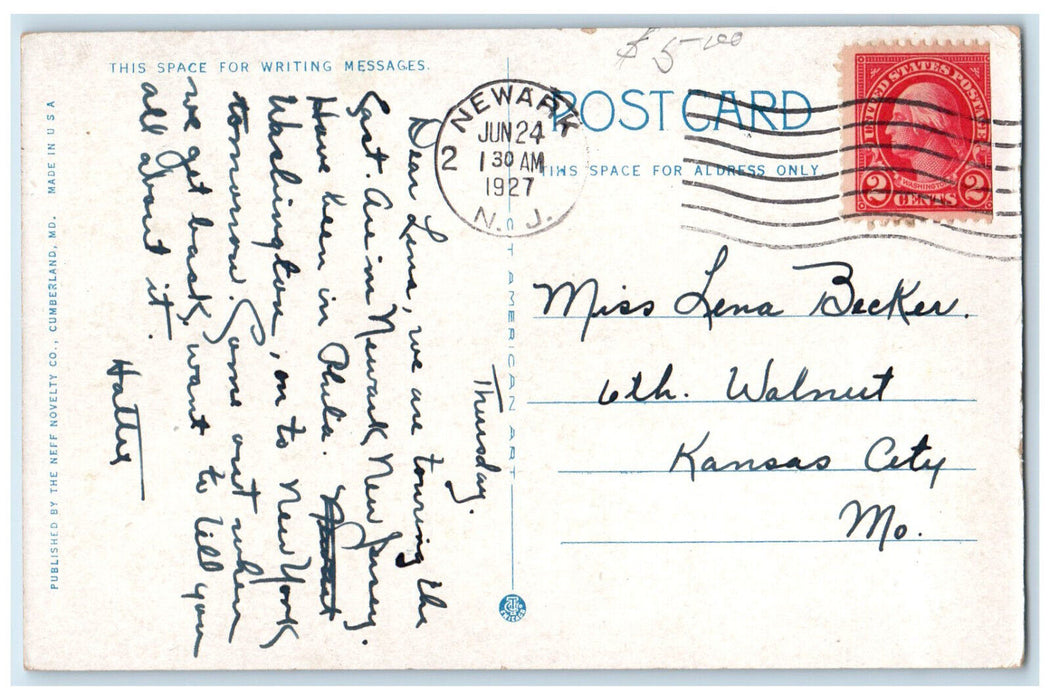 $ 5.00
THIS SPACE FOR WRITING MESSAGES.
POST CARD
THIS SPACE FOR ADDRESS ONLY.
NEWARK
JUN 24
1 30 AM
1927
N. J.
2
UNITED STATES POSTAGE
WASHINGTON
2 CENTS 2
Thursday.
Dear Lena, we are touring the
East. Are in Newark New Jersey.
Have been in Phila.
Washington, on to New York
tomorrow. Come out when
we get back, want to tell you
all about it.
Hattie
Miss Lena Becker.
6th. Walnut
Kansas City
Mo.
PUBLISHED BY THE NEFF NOVELTY CO., CUMBERLAND, MD. MADE IN U S A
CT AMERICAN ART